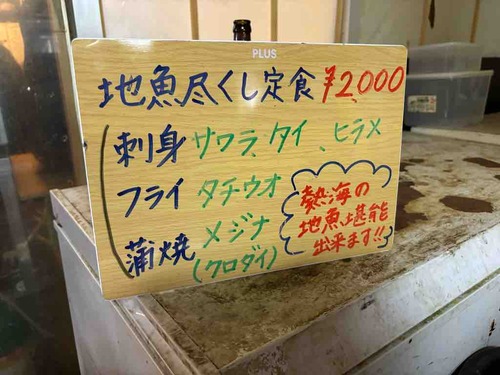 PLUS
地魚尽くし定食 ¥2,000
刺身 サワラ、タイ、ヒラメ
フライ タチウオ
蒲焼 メジナ
(クロダイ)
熱海の
地魚堪能
出来ます!!